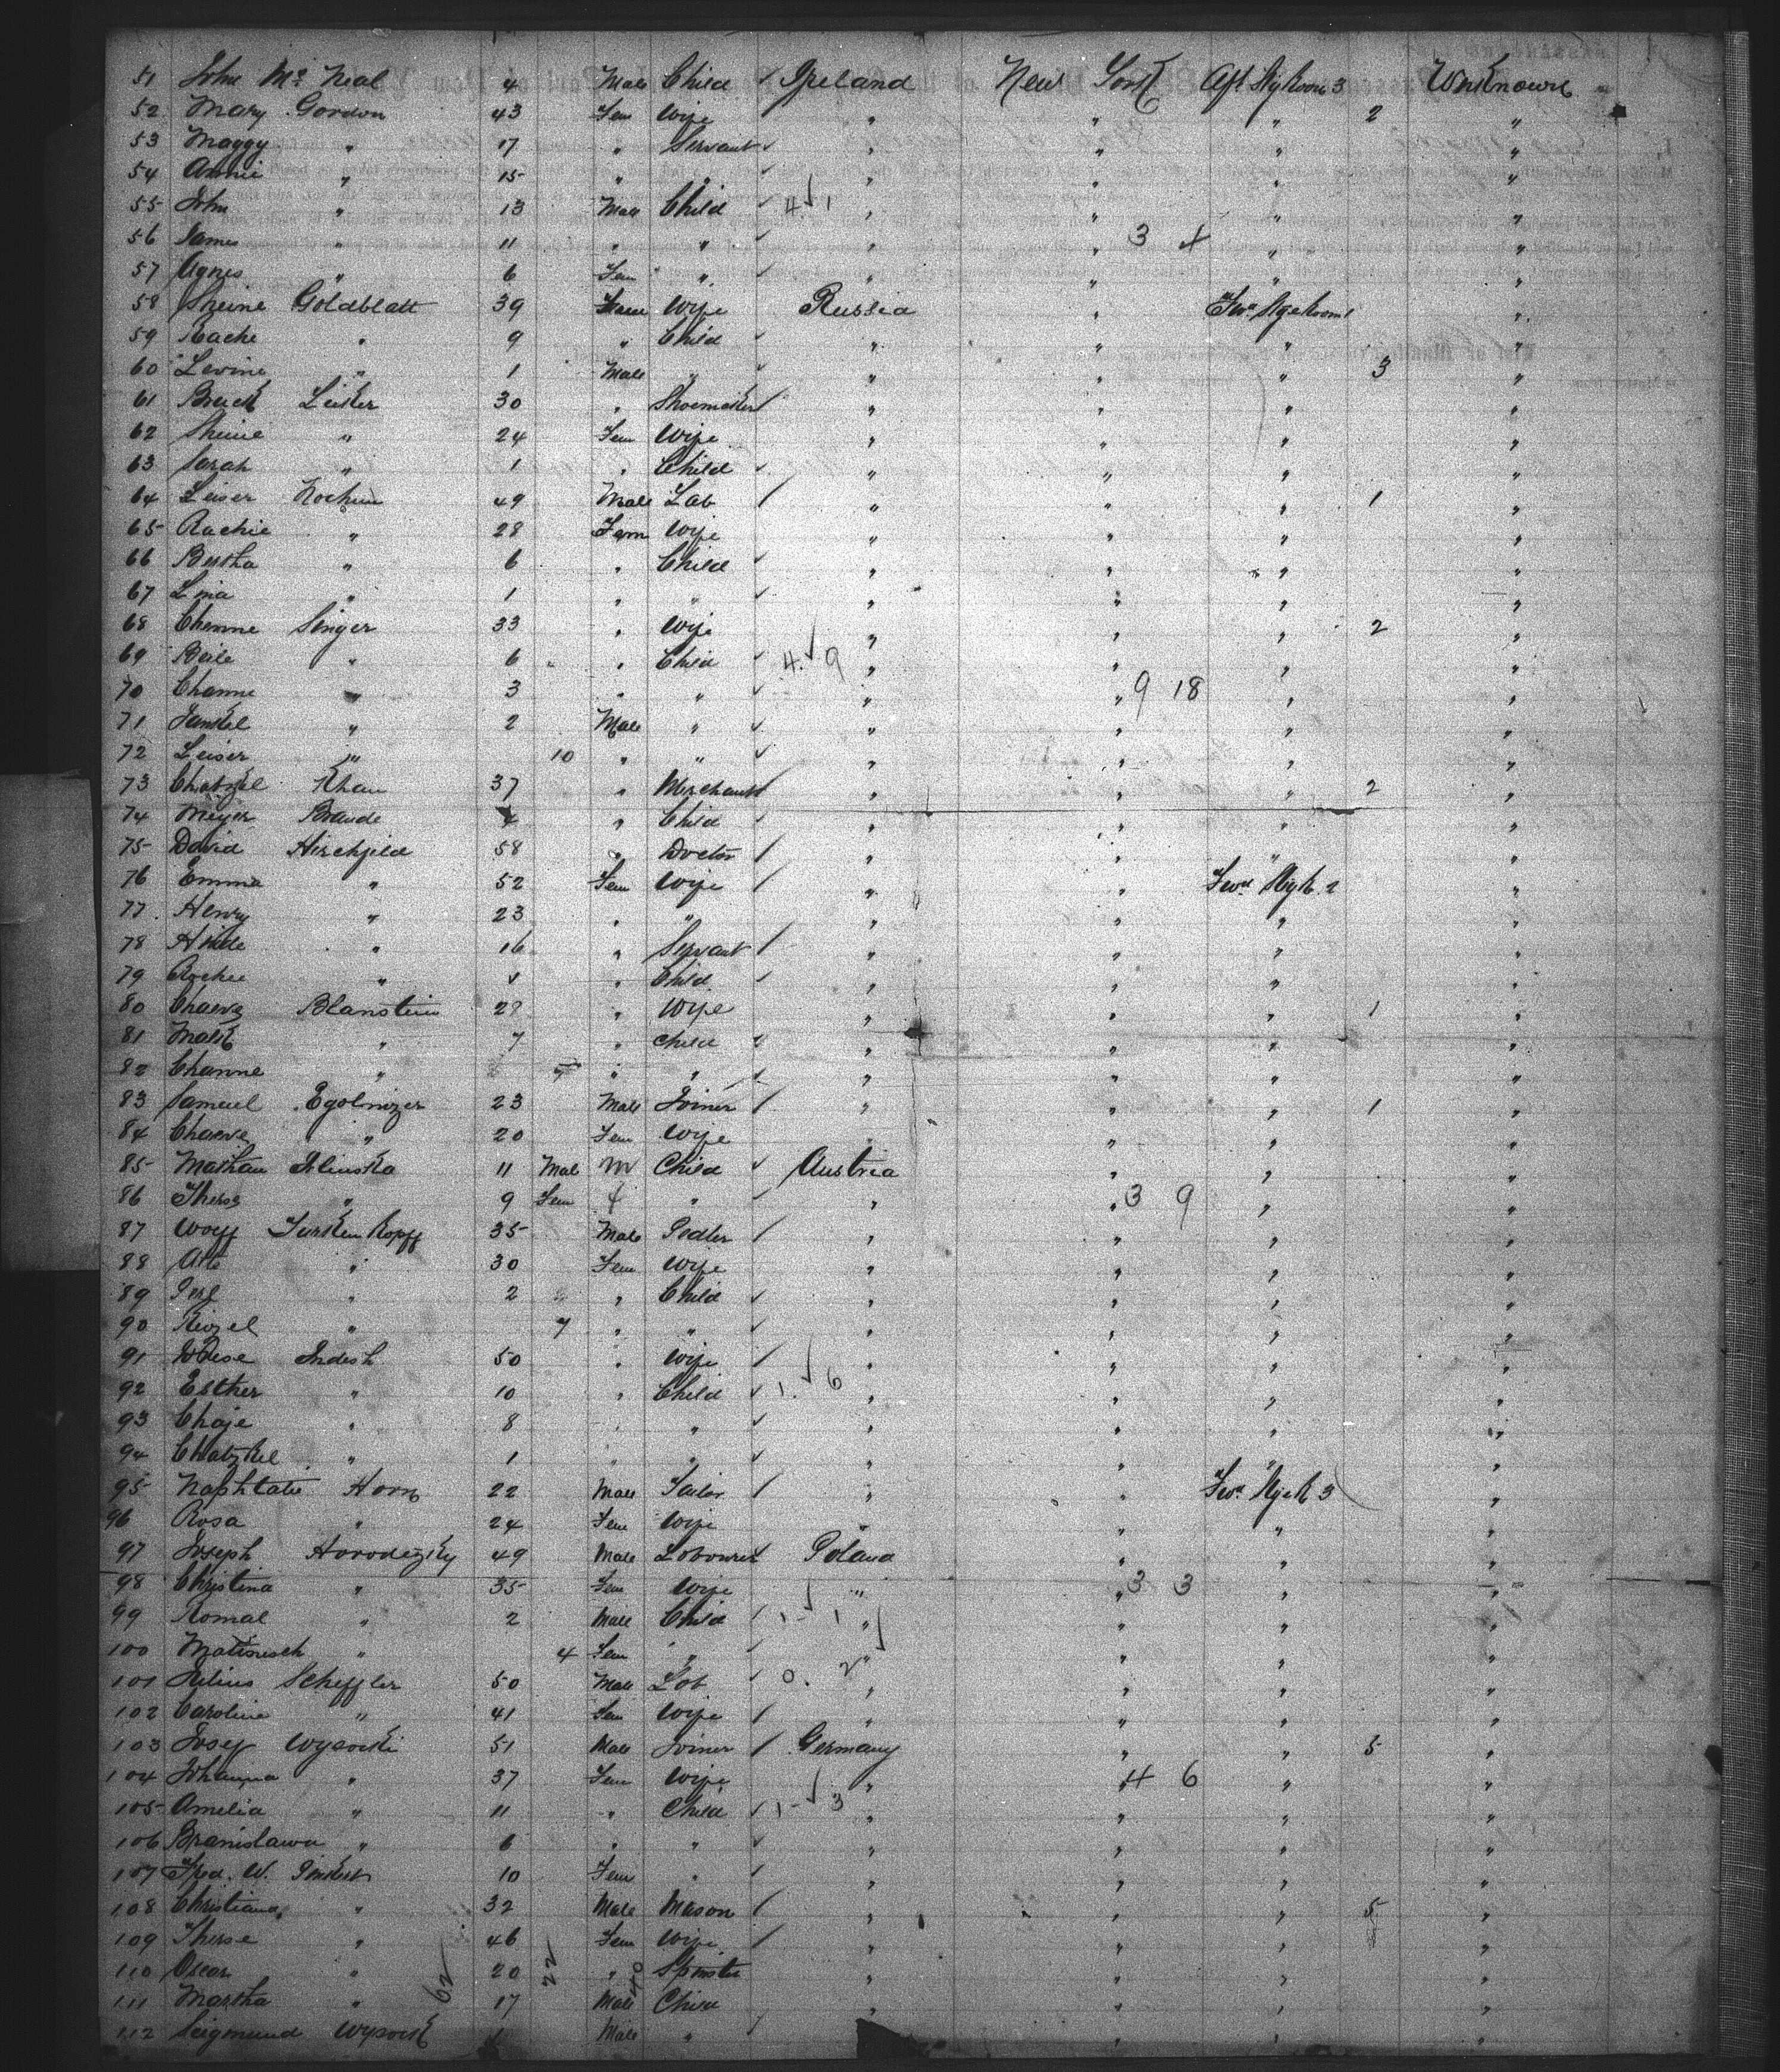 51 John Mc Neal 4 Male Child ✓ Ireland New York Aft Stg Room 3 Unknown
52 Mary Gordon 43 Fem Wife " " " 2 "
53 Maggy " 17 " Servant ✓ " " " "
54 Annie " 15 " " ✓ " " " "
55 John " 13 Male Child ✓ 4 ✓ 1 " " " "
56 James " 11 " " ✓ " " 3 4 " "
57 Agnes " 6 Fem " ✓ " " " "
58 Sheine Goldblatt 39 Wife Russia " Stge Room 1 "
59 Rache " 9 " Child ✓ " " " "
60 Levine " 1 Male " ✓ " " " 3 "
61 Leiker 30 " Shoemaker / " " " "
62 Sheine " 24 Fem Wife " " " "
63 Sarah " 1 " Child ✓ " " " "
64 Leiser Nochum 49 Male Lab / " " " 1 "
65 Rachie " 28 Fem Wife " " " "
66 Bertha " 6 " Child ✓ " " " "
67 Lina " 1 " " ✓ " " " "
68 Chenne Singer 33 " Wife " " " 2 "
69 Beile " 6 " Child ✓ 4 ✓ 9 " " " "
70 Channe " 3 " " ✓ " " 9 18 " "
71 Jankel " 2 Male " ✓ " " " "
72 Leiser " 10 " " ✓ " " " "
73 Chatzkel Khan 37 " Merchant / " " " 2 "
74 Meyer Braude " Child ✓ " " " "
75 David Hirchfild 58 " Doctor / " " " "
76 Emma " 52 Fem Wife / " " "
77 Henry " 23 " " " " " "
78 Hinde " 16 " Servant / " " " "
79 " " Child ✓ " " " "
80 Blanstein 28 " Wife " " " 1 "
81 " 7 " Child ✓ " " " "
82 Channe " " " ✓ " " " "
83 Samuel Egolnizer 23 Male Joiner / " " " 1 "
84 " 20 Fem Wife " " " "
85 Nathan 11 Male m Child ✓ Austria " " "
86 " 9 Fem f " ✓ " " 3 9 " "
87 Wolff Turkenkopff 35 Male Pedler / " " " "
88 " 30 Fem Wife " " " "
89 " 2 " Child ✓ " " " "
90 Reizel " 7 " " ✓ " " " "
91 50 " Wife / " " " "
92 Esther " 10 " Child ✓ 1 ✓ 6 " " " "
93 Chaje " 8 " " ✓ " " " "
94 Chatzkel " 1 " " ✓ " " " "
95 Horn 22 Male Tailor / " " "
96 Rosa " 24 Fem Wife " " " "
97 Joseph Horodezky 49 Male Poland " " "
98 Christina " 35 Fem Wife " " 3 3 " "
99 Romal " 2 Male Child / 1 ✓ 1 " " " "
100 " 4 Fem " ✓ " " " "
101 Julius Scheffler 50 Male Lab ✓ 0 2 " " " "
102 Caroline " 41 Fem Wife / " " " "
103 Josef Wysocki 51 Male Joiner / Germany " " 5 "
104 Johanna " 37 Fem Wife " " 4 6 " "
105 Amelia " 11 " Child ✓ 1 ✓ 3 " " " "
106 Branislawa " 6 " " ✓ " " " "
107 Fred. W. 10 Fem " ✓ " " " "
108 Christiana " 32 Male Mason / " " " 5 "
109 Therse " 46 Fem Wife / " " " "
110 Oscar " 20 " Spinster " " " "
111 Martha " 17 Male Child " " " "
112 Seigmund Wysocki Male " / " " "
62 22 40